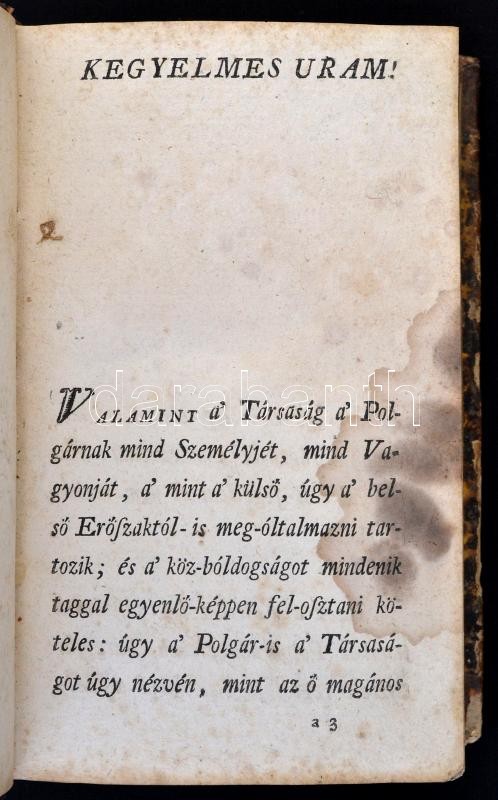 KEGYELMES URAM!
VALAMINT a' Társaság a' Pol-
gárnak mind Személyjét, mind Va-
gyonját, a' mint a' külső, úgy a' bel-
ső Erőſzaktól-is meg-óltalmazni tar-
tozik; és a' köz-bóldogságot mindenik
taggal egyenlő-képpen fel-oſztani kö-
teles: úgy a' Polgár-is a' Társasá-
got úgy nézvén, mint az ő magános
a 3
darabanth